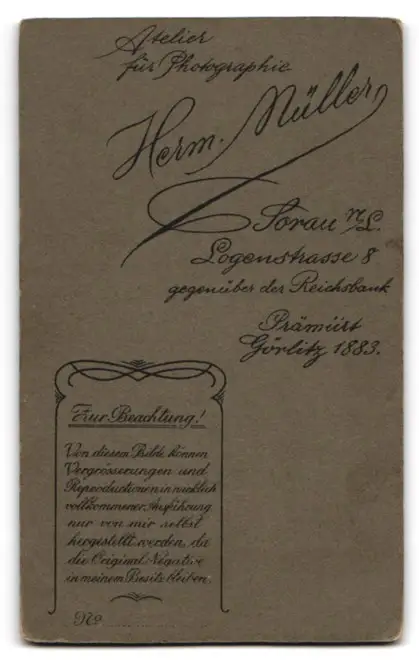 Atelier
für Photographie
Herm. Müller,
Sorau N/L.
Logenstrasse 8
gegenüber der Reichsbank
Prämiirt
Görlitz 1883.
Zur Beachtung!
Von diesem Bilde können
Vergrösserungen und
Reproductionen in wirklich
vollkommener Ausführung
nur von mir selbst
hergestellt werden, da
die Original Negative
in meinem Besitz bleiben.
No